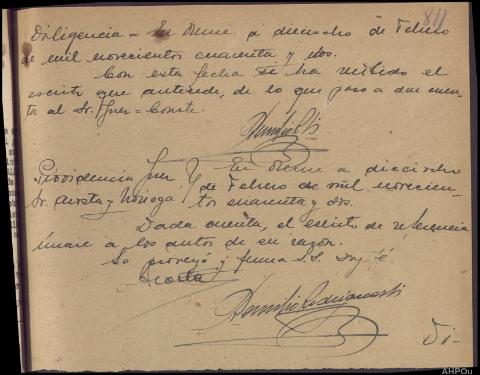 811
Diligencia = En Orense a dieciocho de Febrero
de mil novecientos cuarenta y dos.
Con esta fecha se ha recibido el
escrito que antecede, de lo que paso a dar cuen-
ta al Sr. Juez = Conste.
Providencia Juez } En Orense a dieciocho
Sr. Acosta y Noriega } de Febrero de mil novecien-
tos cuarenta y dos.
Dada cuenta, el escrito de referencia
únase a los autos de su razón.
Lo proveyó y firma S.S. Doy fé
Acosta
Di-
AHPOu